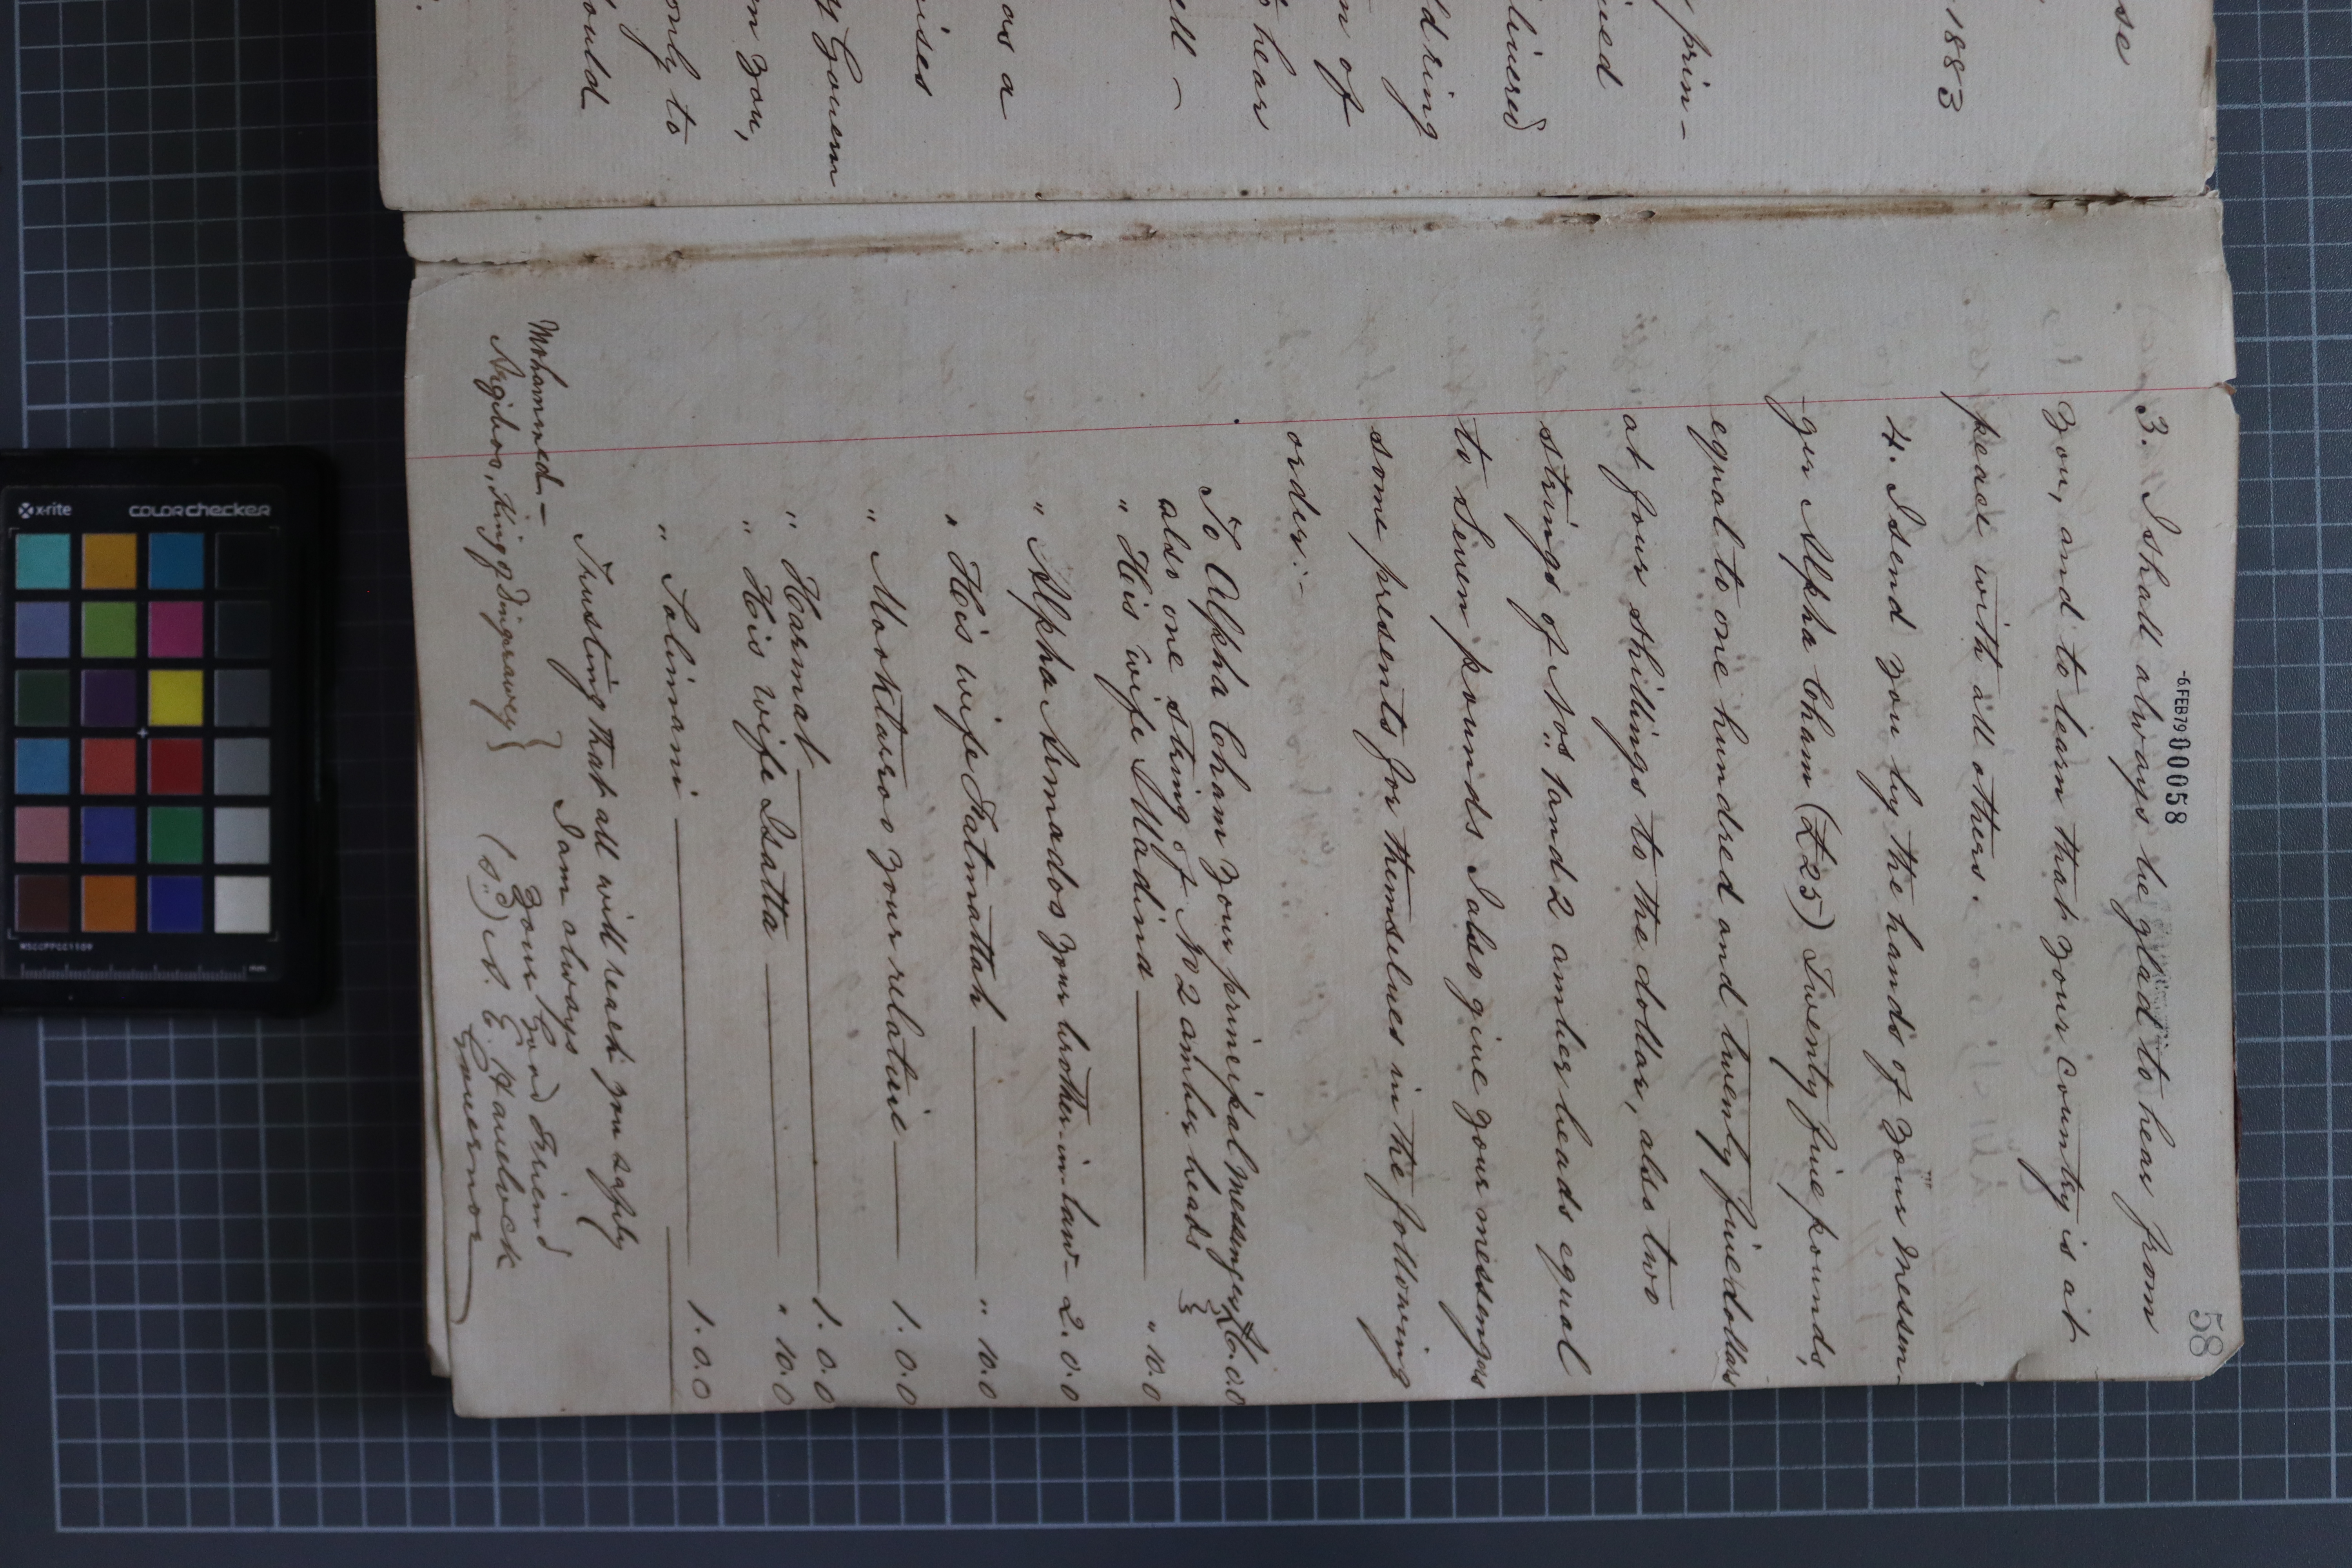 se
1883
prin-
ined
livered
d ring
n of
hear
ell -
as a
ised
y Govern
m you,
only to
ould
58
-6 FEB 79 00058
3. I shall always be glad to hear from
you, and to learn that your country is at
peace with all others.
4. I send you by the hands of your messen-
ger Alpha Cham (£25) Twenty five pounds,
equal to one hundred and twenty five dollars
at four shillings to the dollar, also two
strings of Nos 1 and 2 amber beads equal
to seven pounds I also give your messengers
some presents for themselves in the following
order:-
To Alpha Cham your principal messenger
also one string of No 2 amber beads
" His wife Madina " 10.0
" Alpha Amadoo your brother in law - 2.0.0
" His wife Fatmattah " 10.0
" Mooktaroo your relative 1.0.0
" Harmat 1.0.0
" His wife Isatta " 10.0
" Salimani 1.0.0
Trusting that all will reach you safely
I am always
Your Good Friend
(sd) A. E. Havelock
Governor
Mohammed -
King of Dingarawey
x-rite colorchecker
MSCCPPCC1109
mm